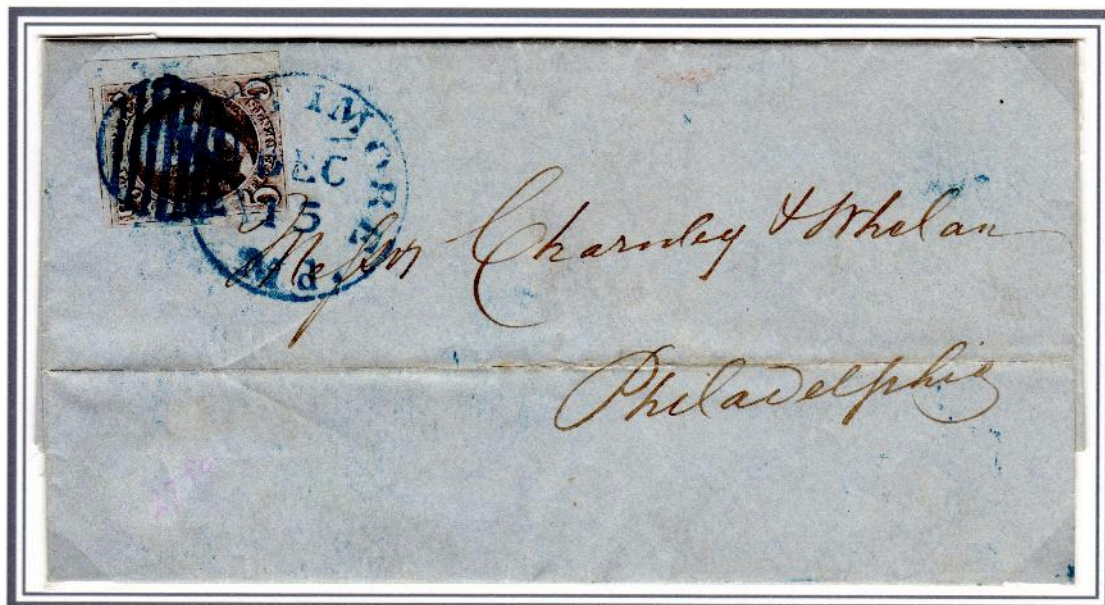 TIMORE
Md.
DEC
15
Messrs Charnley & Whelan
Philadelphia